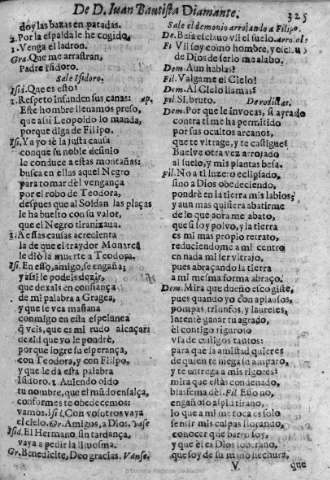 De D. Iuan Bautista Diamante.
325
doy las bazas en patadas.
2. Por la espalda le he cogido.
1. Venga el ladron.
Gra. Que me arrastran,
Padre Isidro.
Sale Isidoro.
Isi. Que es esto?
1. Respeto infunden sus canas: ap.
Este hombre llevamos preso,
que assi Leopoldo lo manda,
porque diga de Filipo.
Isi. Ya yo sè la justa causa
conque su noble
le conduce a estas montañas:
busca en ellas aquel Negro
para tomar del vengança
por el robo de Teodora,
despues que al Soldan las plaças
le ha buelto con su valor,
que el Negro tiranizaua.
2. A essas causas
la de que el traydor
le diò la muerte a Teodora.
Isi. En esso, amigo, se engaña;
y assi le podeis dezir,
que dexais en confiança
de mi palabra a Gragea,
y que le vea mañana
conmigo en esta
q̃ veis, que es mi rudo alcaçar:
dezid que yo le pondrè,
porque logre su esperança,
con Teodora, y con Filipo,
y que le dà esta palabra
Isidoro. 1. Auiendo oìdo
tu nombre, que el mũdo ensalça,
conformes te obedecemos:
vamos. Isi. Con vosotros vaya
el cielo. Gr. Amigos, a Dios. Vase
Isid. El Hermano, sin tardança,
vaya a pedir la limosna.
Gr. Benedicite, Deo gracias. Vanse.
Sale el demonio arrojando a Filipo.
De. Baxa esclauo vil el suelo. arroj.
Fi. Vil soy como hombre, y
de Dios de serlo me alabo.
Dem. Aun hablas?
Fil. Valgame el Cielo!
Dem. Al Cielo llamas?
Fil. Si, bruto.
Dem. Porque le invocas, si ayrado
contra ti me ha permitido
por sus ocultos arcanos,
que te vltrage, y te castigue?
Buelve otra vez arrojado
al suelo, y mis plantas besa.
Fil. No a ti luzero eclipsado,
sino a Dios obedeciendo,
pondrè en la tierra mis labios;
y aun mas quisiera abatirme
de lo que aora me abato,
que si soy polvo, y la tierra
es mi mas propio retrato,
reduciendome a mi centro
en nada mi ser vltrajo,
pues abraçando la tierra
a mi mesma forma abraço.
Dem. Mira que dueño elegiste,
pues quando yo con aplausos,
pompas, triunfos, y laureles,
intentè ganar tu agrado,
èl contigo riguroso
vsa de castigos tantos:
para que la amistad quieres
de quien te niega su amparo,
y te entrega a mis rigores?
mira que estàs condenado,
blasfema dèl. Fil. Esso no,
engañoso aspid tirano,
lo que a mi me toca es solo
sentir mis culpas llorando,
conocer que barro soy,
y que èl es Dios soberano,
que soy de su mano hechura,
V
que